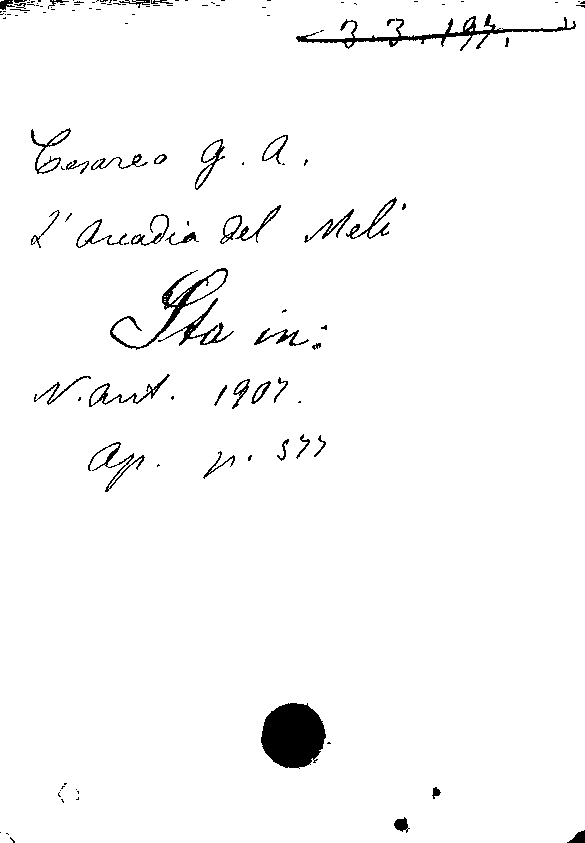 3.3.197.
Cesareo G. A.
L'Arcadia del Meli
Sta in:
N. Ant. 1907.
Ap. p. 577